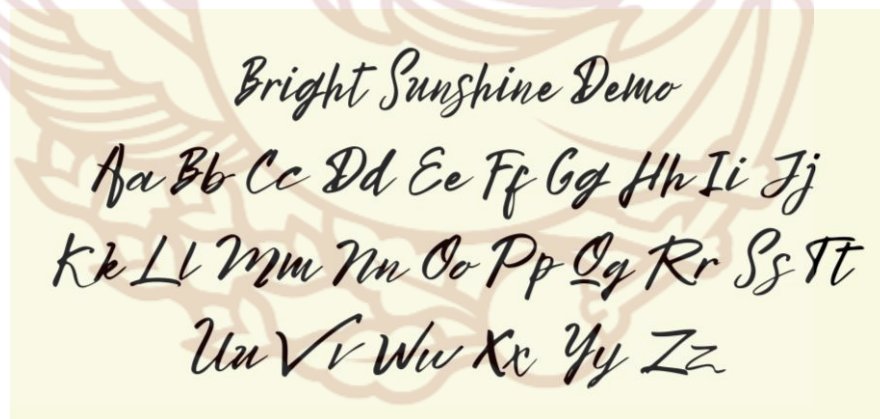 Bright Sunshine Demo
Aa Bb Cc Dd Ee Ff Gg Hh Ii Jj
Kk Ll Mm Nn Oo Pp Qq Rr Ss Tt
Uu Vv Ww Xx Yy Zz